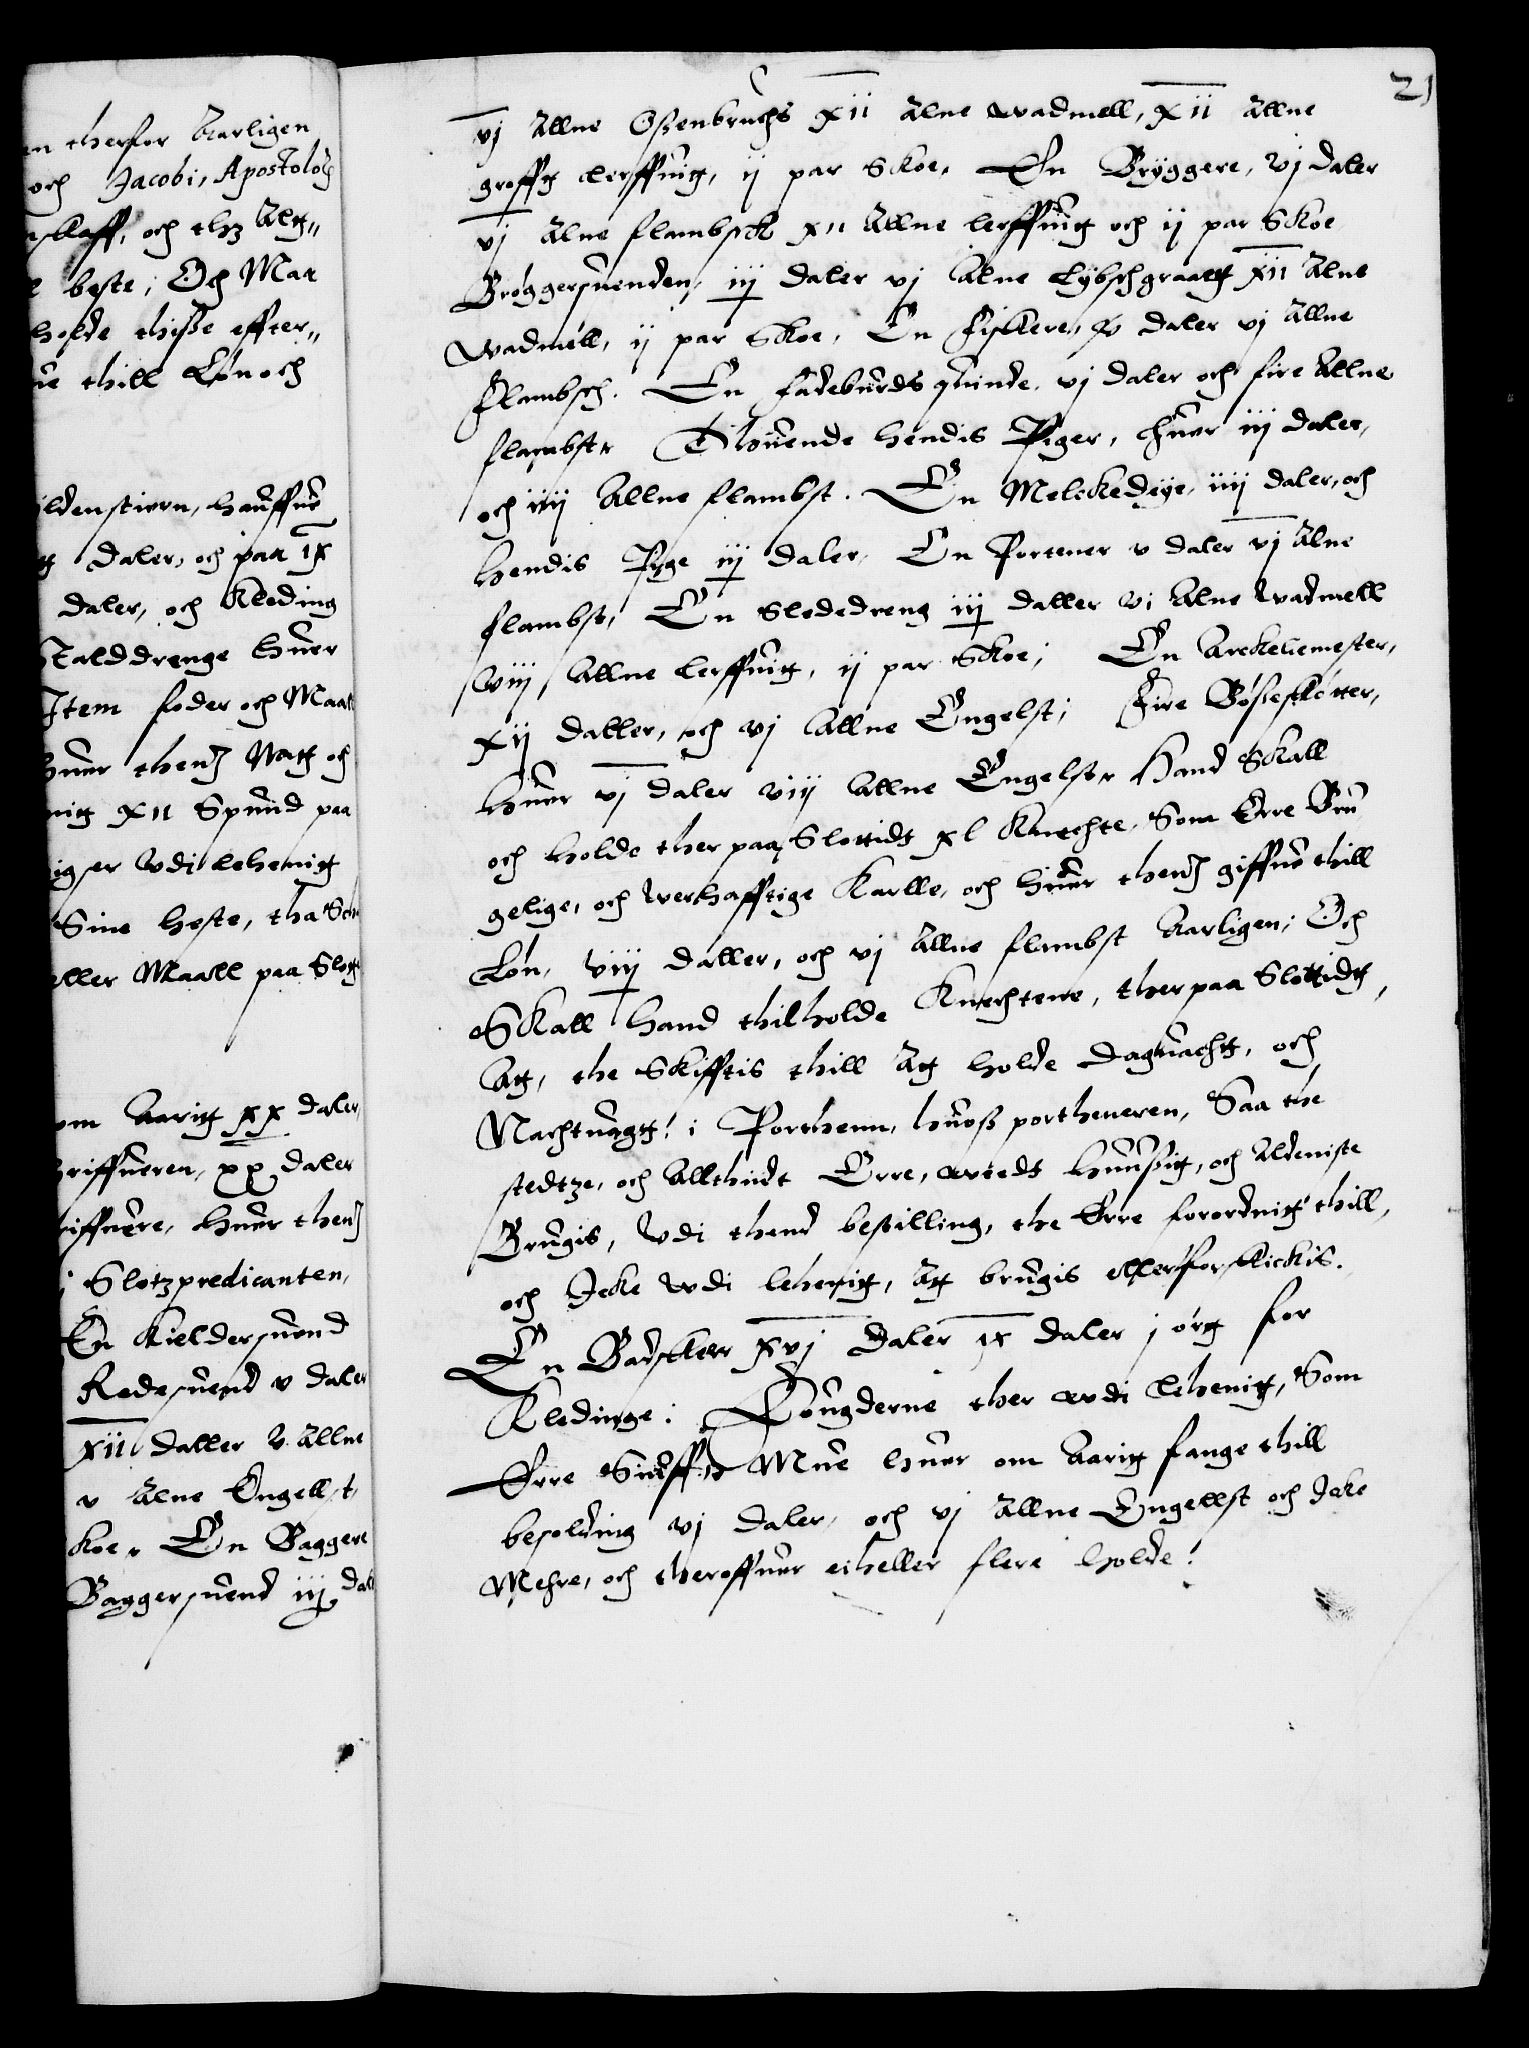 en therfor Aarligen
och Jacobi, Apostoloꝝ
skaff, och thz Altg„
l beste; Och Maa
holde thisse effter„
ne thill Løn och
ildenstiern, haŭffŭe
tt daler, och paa ix
daler, och Kleding
Stalddrenge hŭer
Item foder och Maall
hŭer thend Natt och
nitt xii Spŭnd paa
igser vdi lehenitt
Sine heste, tha Sch
eller Maall paa Slott
om Aaritt xx daler,
kriffŭeren, xx daler
riffŭere, hŭer thend
i Slotzpredicanten,
En Kieldersŭend
Redesŭend v daler
xii daller v Allne
v Alne Engellst,
koe, En Baggere
Baggersŭend iij dal
21
vj Allne Ossenbrŭchs xii Alne wadmell, xii Allne
grofft lerffŭitt, ij par Skoe, En Bryggere, vj daler
vj Alne flambsck xii Allne lerffŭitt och ij par Skoe
Brøggersŭenden, iij daler vj Alne Lybschgraatt xii Alne
wadmell, ij par Skoe, En Fiskere, v daler vj Allne
Flambsch. En fadebŭrds qŭinde, vj daler och fire Allne
flambst, Thŭende hendis Piger, hŭer iij daler,
och iiij Allne flambst. En Melckedeye, iiij daler, och
hendis Pyge iij daler, En Portener v daler vj Alne
flambst, En Slodedreng iij daller vi Alne wadmell
viij Allne lerffŭitt, ij par Skoe; En Arckeliemester,
xij daller, och vj Allne Engelst; Fire Bøsseskøtter,
hŭer vj daler viij Allne Engelst, Hand Skall
och holde ther paa Slottidt xl Knechte, Som Erre Brŭ
gelige, och werhafftige Karlle, och hŭer thend giffŭe thill
Løn, viij daller, och vj Allne flambst Aarligen; Och
Skall hand thilholde Knechtene, ther paa Slottidtt,
Att, the Skifftis thill Att holde Dagŭachtt, och
Nachtŭagtt! i Porthenn, hŭoss portheneren, Saa the
stedtze, och Allthidt Erre, Artedt hŭŭssitt, och Aldeniste
Brŭgis, vdi thend bestilling, the Erre forordnitt thill,
och Icke vdi lehenitt, Att brŭgis eller forskickis.
En Badskerr xvj Daler ix daler j ørtt for
Kledinge; Fougderne ther vdi lehenitt, Som
Erre Mŭe hŭer om Aaritt fange thill
besolding vj daler, och vj Allne Engellst och Icke
Mehre, och theroffŭer eiheller flere holde!